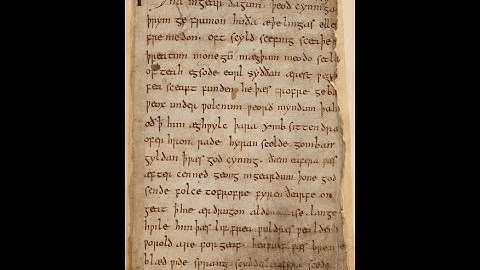 na ingear dagum. þeod cyninga
þrym ge frunon huða æþelingas elle
fre medon. oft scyld scefing sceaþe
þreatum monegū mægþum meodo setl
of teah egsode eorl syððan ærest ƿea
fea sceaft funden he þæs frofre geba
ƿeox under ƿolcnum ƿeorð myndum þah
oð ꝥ him æghƿylc þara ymb sittendra
ofer hron rade hyran scolde gomban
gyldan ꝥ ƿæs god cyning. ðæm eafera ƿæs
æfter cenned geong in geardum þone god
sende folce tofrofre fyren ðearfe on
geat ꝥ hie ær drugon aldor ase. lange
hƿile him þæs lif frea ƿuldres ƿealdend
ƿorold are for geaf. beoƿulf ƿæs breme
blæd ƿide sprang scyldes eafera scede